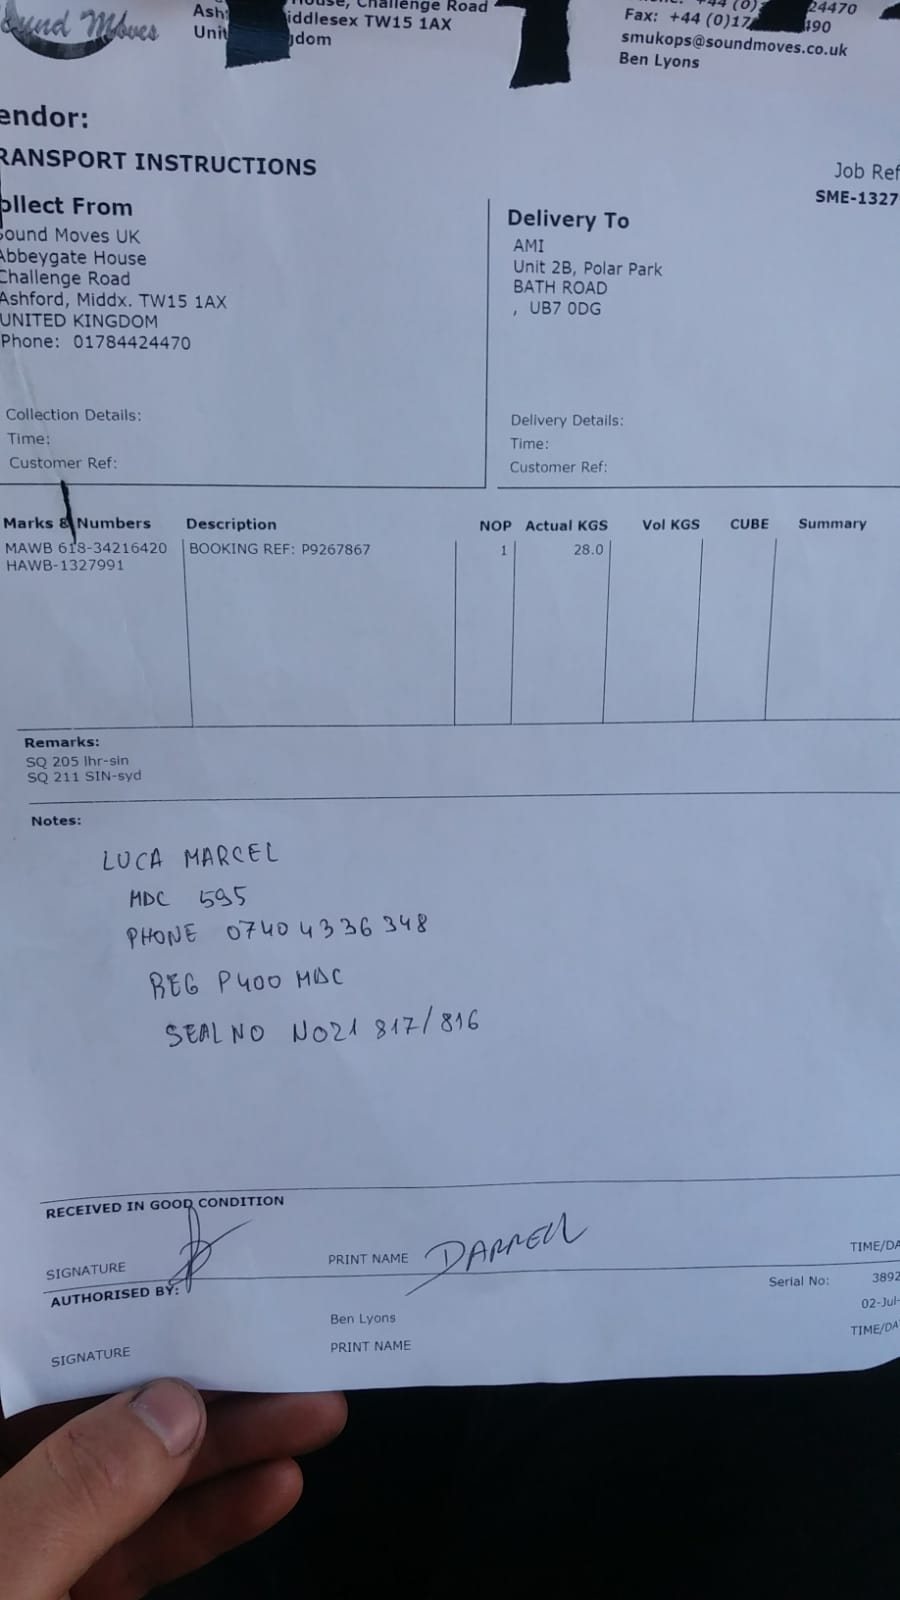 und Moves
House, Challenge Road
Ash iddlesex TW15 1AX
Uni gdom
+44 (0) 24470
Fax: +44 (0)17 490
smukops@soundmoves.co.uk
Ben Lyons
endor:
RANSPORT INSTRUCTIONS
Job Ref
SME-1327
ollect From
Sound Moves UK
Abbeygate House
Challenge Road
Ashford, Middx. TW15 1AX
UNITED KINGDOM
Phone: 01784424470
Collection Details:
Time:
Customer Ref:
Delivery To
AMI
Unit 2B, Polar Park
BATH ROAD
, UB7 0DG
Delivery Details:
Time:
Customer Ref:
Marks & Numbers Description NOP Actual KGS Vol KGS CUBE Summary
MAWB 618-34216420 BOOKING REF: P9267867 1 28.0
HAWB-1327991
Remarks:
SQ 205 lhr-sin
SQ 211 SIN-syd
Notes:
LUCA MARCEL
MDC 595
PHONE 0740 4336 348
REG P400 MDC
SEAL NO N021 817/816
RECEIVED IN GOOD CONDITION
SIGNATURE PRINT NAME DARRELL TIME/DA
AUTHORISED BY: Serial No: 3892
Ben Lyons 02-Jul-
SIGNATURE PRINT NAME TIME/DA